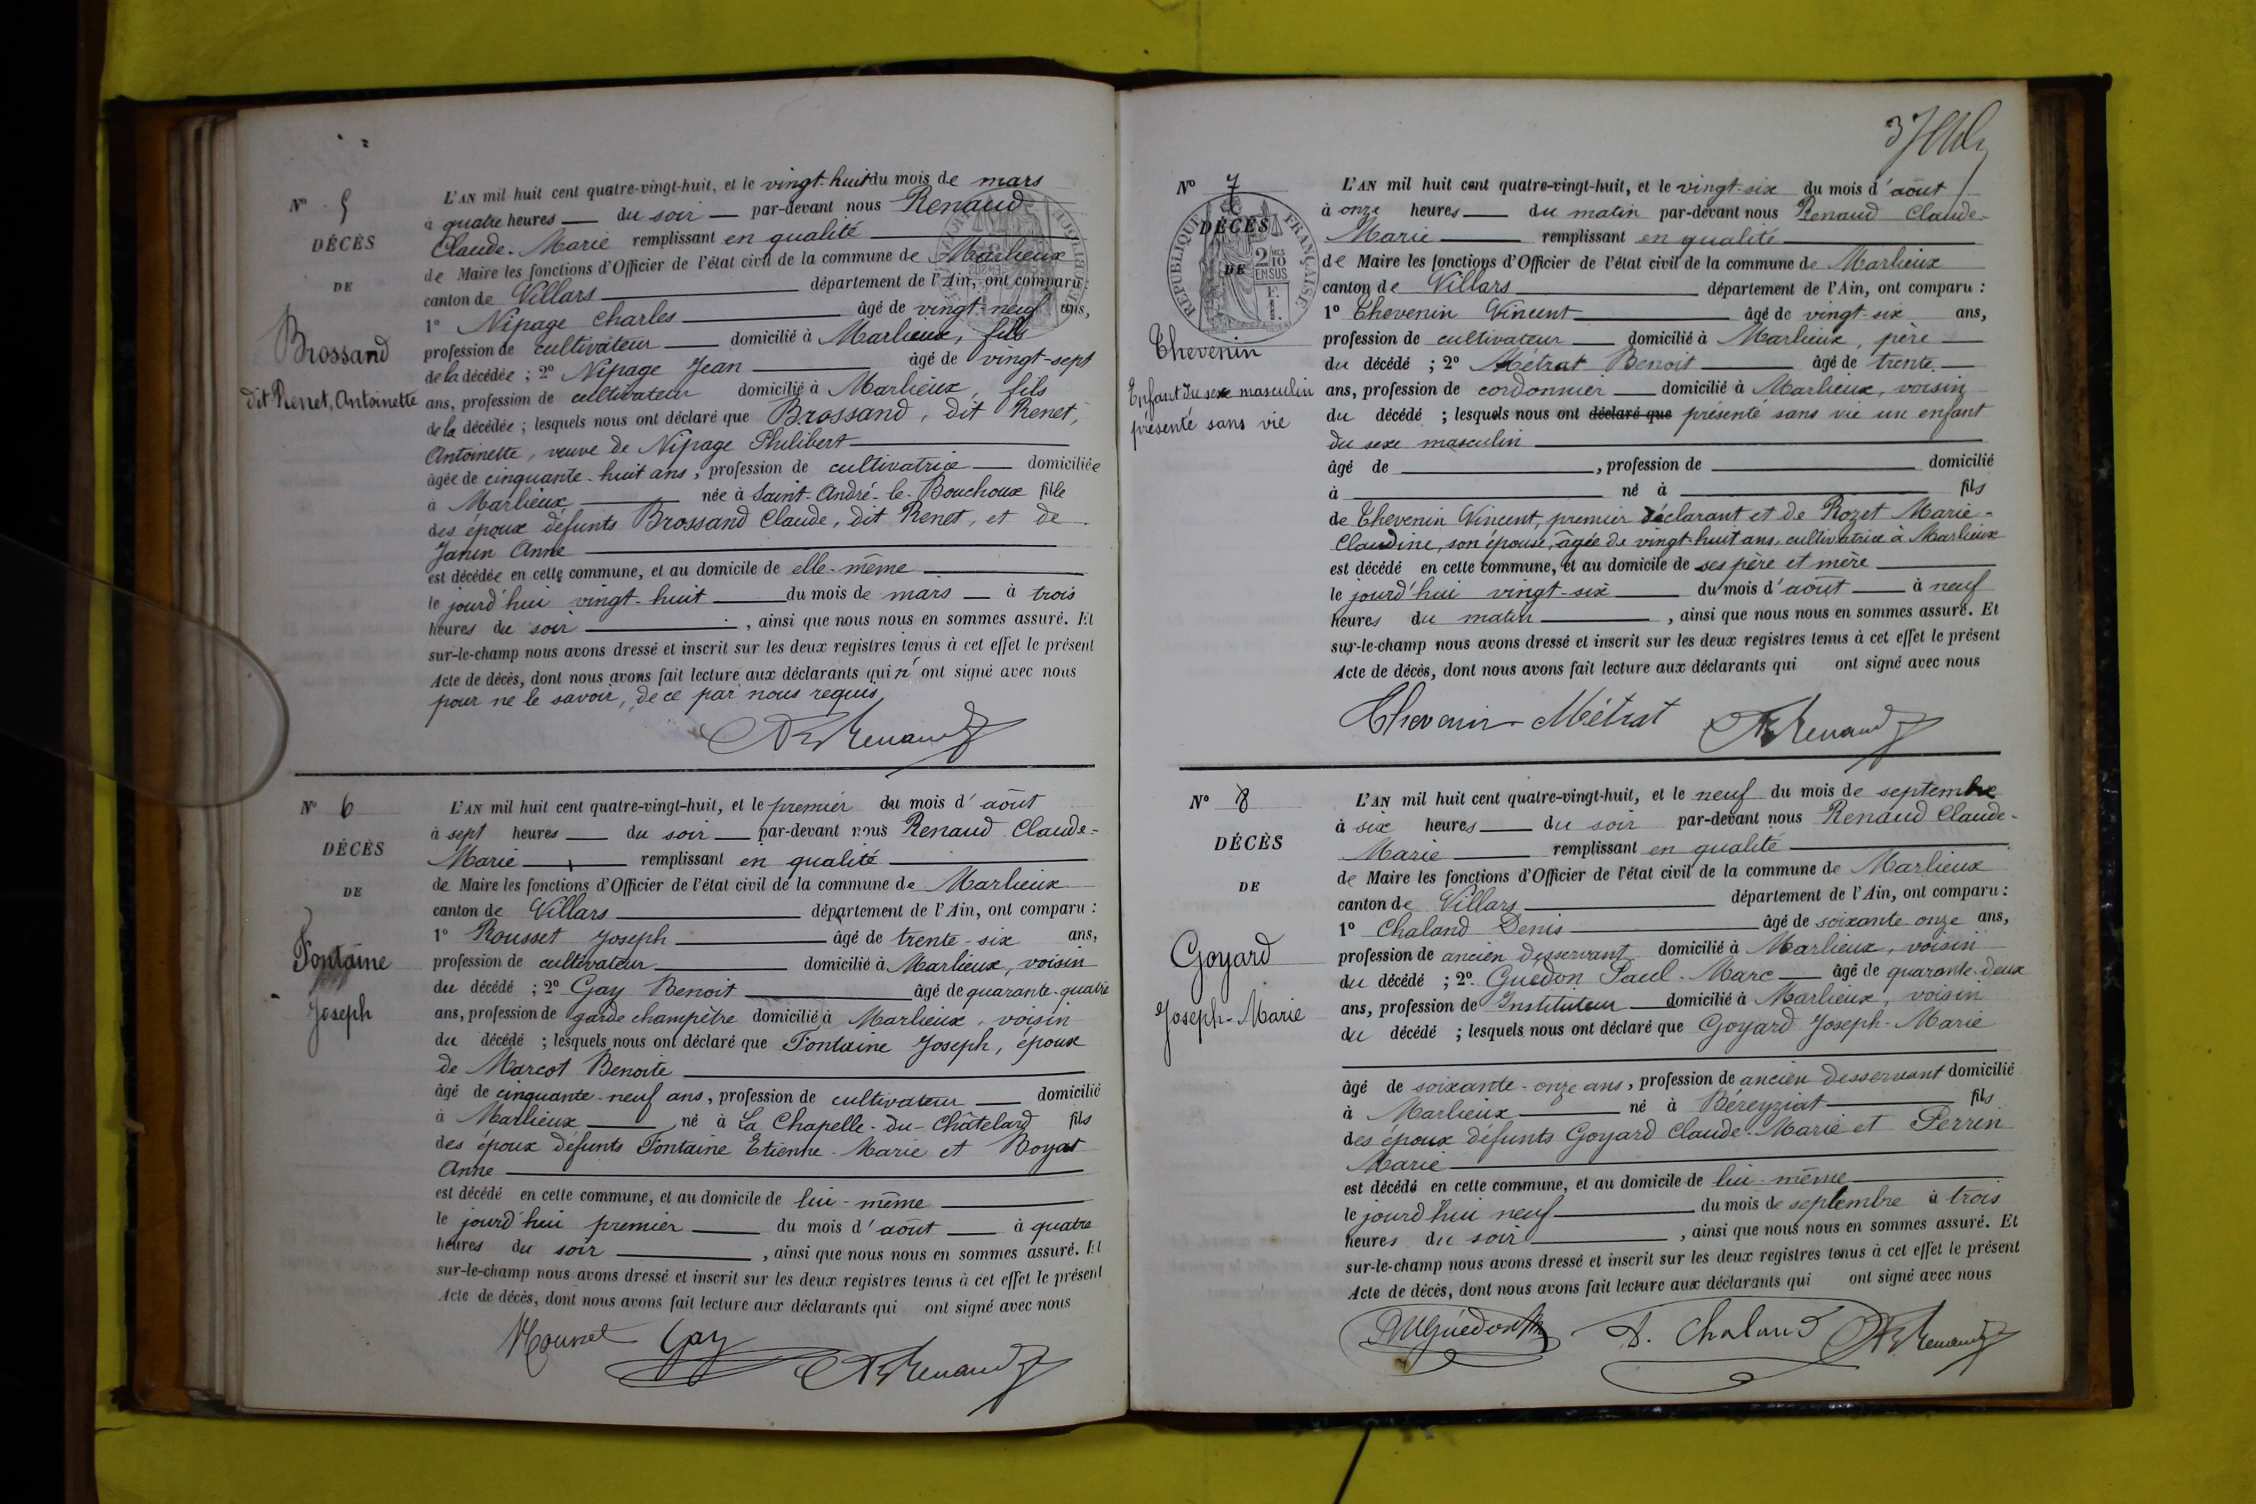 N° 5
DÉCÈS
DE
Brossand
dit Renet, Antoinette
L'AN mil huit cent quatre-vingt-huit, et le vingt-huit du mois de mars
à quatre heures du soir par-devant nous Renaud
Claude-Marie remplissant en qualité
de Maire les fonctions d'Officier de l'état civil de la commune de Marlieux
canton de Villars département de l'Ain, ont comparu :
1° Nipage Charles âgé de vingt-neuf ans,
profession de cultivateur domicilié à Marlieux, fils
de la décédée ; 2° Nipage Jean âgé de vingt-sept
ans, profession de cultivateur domicilié à Marlieux, fils
de la décédée ; lesquels nous ont déclaré que Brossand, dit Renet,
Antoinette, veuve de Nipage Philibert
âgée de cinquante-huit ans, profession de cultivatrice domiciliée
à Marlieux née à Saint-André-le-Bouchoux fille
des époux défunts Brossand Claude, dit Renet, et de
Janin Anne
est décédée en cette commune, et au domicile de elle-même
le jourd'hui vingt-huit du mois de mars à trois
heures du soir, ainsi que nous nous en sommes assuré. Et
sur-le-champ nous avons dressé et inscrit sur les deux registres tenus à cet effet le présent
Acte de décès, dont nous avons fait lecture aux déclarants qui n'ont signé avec nous
pour ne le savoir, de ce par nous requis,
Renaud
N° 6
DÉCÈS
DE
Fontaine
Joseph
L'AN mil huit cent quatre-vingt-huit, et le premier du mois d'août
à sept heures du soir par-devant nous Renaud Claude-
Marie remplissant en qualité
de Maire les fonctions d'Officier de l'état civil de la commune de Marlieux
canton de Villars département de l'Ain, ont comparu :
1° Rousset Joseph âgé de trente-six ans,
profession de cultivateur domicilié à Marlieux, voisin
du décédé ; 2° Gay Benoit âgé de quarante-quatre
ans, profession de garde champêtre domicilié à Marlieux, voisin
du décédé ; lesquels nous ont déclaré que Fontaine Joseph, époux
de Marcot Benoite
âgé de cinquante-neuf ans, profession de cultivateur domicilié
à Marlieux né à La Chapelle-du-Châtelard fils
des époux défunts Fontaine Etienne-Marie et Boyat
Anne
est décédé en cette commune, et au domicile de lui-même
le jourd'hui premier du mois d'août à quatre
heures du soir, ainsi que nous nous en sommes assuré. Et
sur-le-champ nous avons dressé et inscrit sur les deux registres tenus à cet effet le présent
Acte de décès, dont nous avons fait lecture aux déclarants qui ont signé avec nous
Rousset Gay Renaud
3
N° 7
DÉCÈS
DE
RÉPUBLIQUE FRANÇAISE
2/10 EN SUS
Thevenin
Enfant du sexe masculin
présenté sans vie
L'AN mil huit cent quatre-vingt-huit, et le vingt-six du mois d'août
à onze heures du matin par-devant nous Renaud Claude-
Marie remplissant en qualité
de Maire les fonctions d'Officier de l'état civil de la commune de Marlieux
canton de Villars département de l'Ain, ont comparu :
1° Thevenin Vincent âgé de vingt-six ans,
profession de cultivateur domicilié à Marlieux, père
du décédé ; 2° Métrat Benoit âgé de trente
ans, profession de cordonnier domicilié à Marlieux, voisin
du décédé ; lesquels nous ont déclaré que présente sans vie un enfant
du sexe masculin
âgé de , profession de domicilié
à né à fils
de Thevenin Vincent, premier déclarant et de Rozet Marie-
Claudine, son épouse, âgée de vingt-huit ans, cultivatrice à Marlieux
est décédé en cette commune, et au domicile de ses père et mère
le jourd'hui vingt-six du mois d'août à neuf
heures du matin, ainsi que nous nous en sommes assuré. Et
sur-le-champ nous avons dressé et inscrit sur les deux registres tenus à cet effet le présent
Acte de décès, dont nous avons fait lecture aux déclarants qui ont signé avec nous
Thevenin Métrat Renaud
N° 8
DÉCÈS
DE
Goyard
Joseph-Marie
L'AN mil huit cent quatre-vingt-huit, et le neuf du mois de septembre
à six heures du soir par-devant nous Renaud Claude-
Marie remplissant en qualité
de Maire les fonctions d'Officier de l'état civil de la commune de Marlieux
canton de Villars département de l'Ain, ont comparu :
1° Chaland Denis âgé de soixante-onze ans,
profession de ancien desservant domicilié à Marlieux, voisin
du décédé ; 2° Guédon Paul-Marc âgé de quarante-deux
ans, profession de Instituteur domicilié à Marlieux, voisin
du décédé ; lesquels nous ont déclaré que Goyard Joseph-Marie
âgé de soixante-onze ans, profession de ancien desservant domicilié
à Marlieux né à Béreyziat fils
des époux défunts Goyard Claude-Marie et Perrin
Marie
est décédé en cette commune, et au domicile de lui-même
le jourd'hui neuf du mois de septembre à trois
heures du soir, ainsi que nous nous en sommes assuré. Et
sur-le-champ nous avons dressé et inscrit sur les deux registres tenus à cet effet le présent
Acte de décès, dont nous avons fait lecture aux déclarants qui ont signé avec nous
PMGuédon D. Chaland Renaud